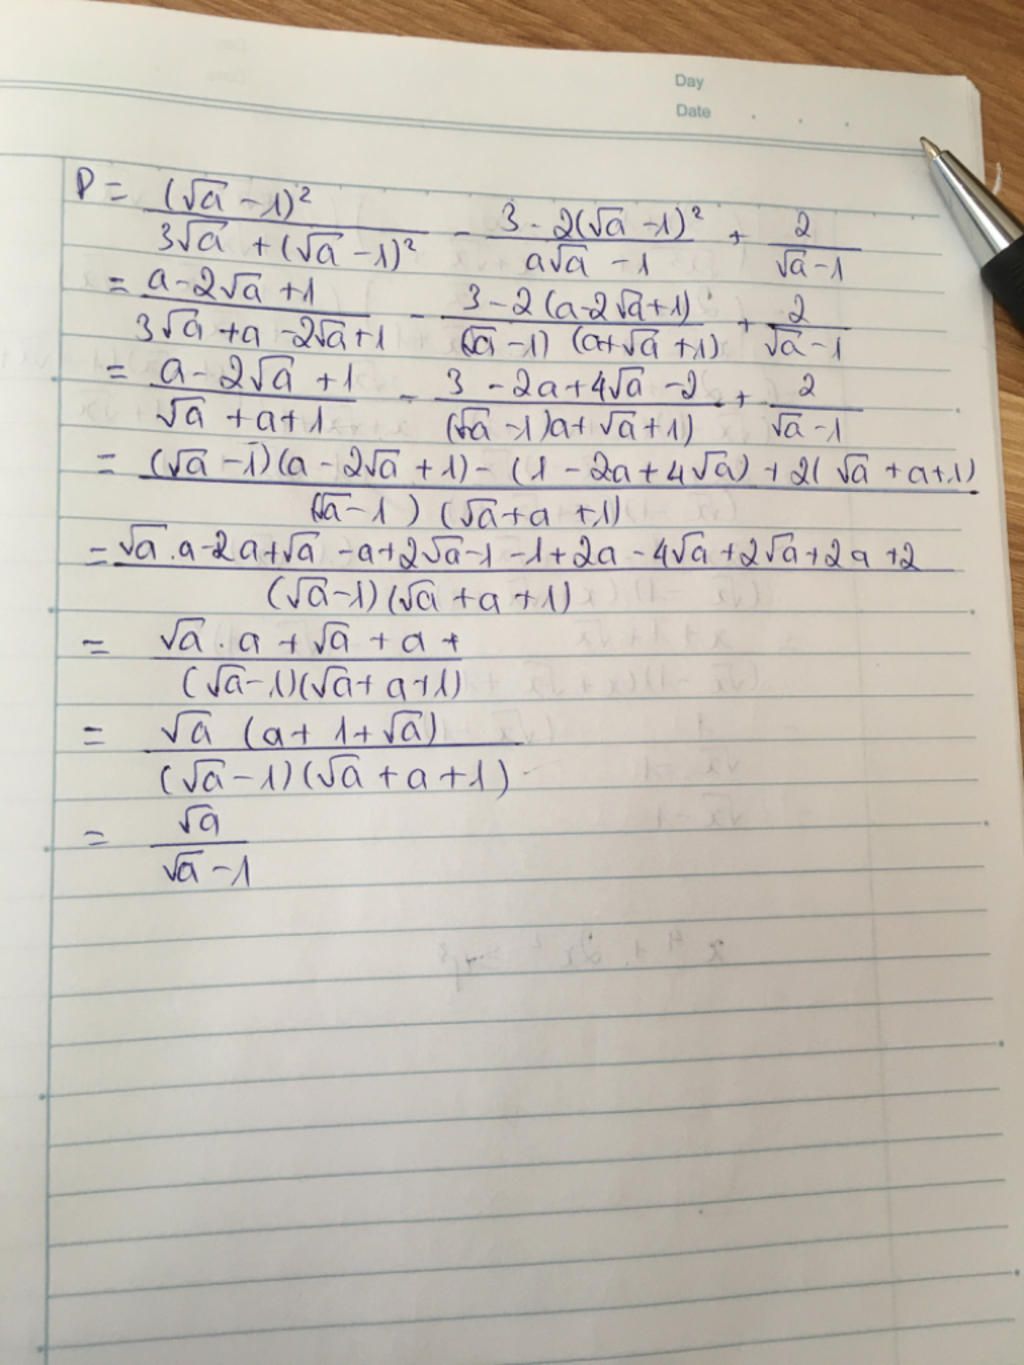 Day
Date . . .
P = (√a - 1)² / (3√a + (√a - 1)²) - (3 - 2(√a - 1)²) / (a√a - 1) + 2 / (√a - 1)
= (a - 2√a + 1) / (3√a + a - 2√a + 1) - (3 - 2(a - 2√a + 1)) / ((√a - 1)(a + √a + 1)) + 2 / (√a - 1)
= (a - 2√a + 1) / (√a + a + 1) - (3 - 2a + 4√a - 2) / ((√a - 1)a + √a + 1) + 2 / (√a - 1)
= ((√a - 1)(a - 2√a + 1) - (1 - 2a + 4√a) + 2(√a + a + 1)) / ((√a - 1)(√a + a + 1))
= (√a . a - 2a + √a - a + 2√a - 1 - 1 + 2a - 4√a + 2√a + 2a + 2) / ((√a - 1)(√a + a + 1))
= (√a . a + √a + a +) / ((√a - 1)(√a + a + 1))
= √a (a + 1 + √a) / ((√a - 1)(√a + a + 1))
= √a / (√a - 1)